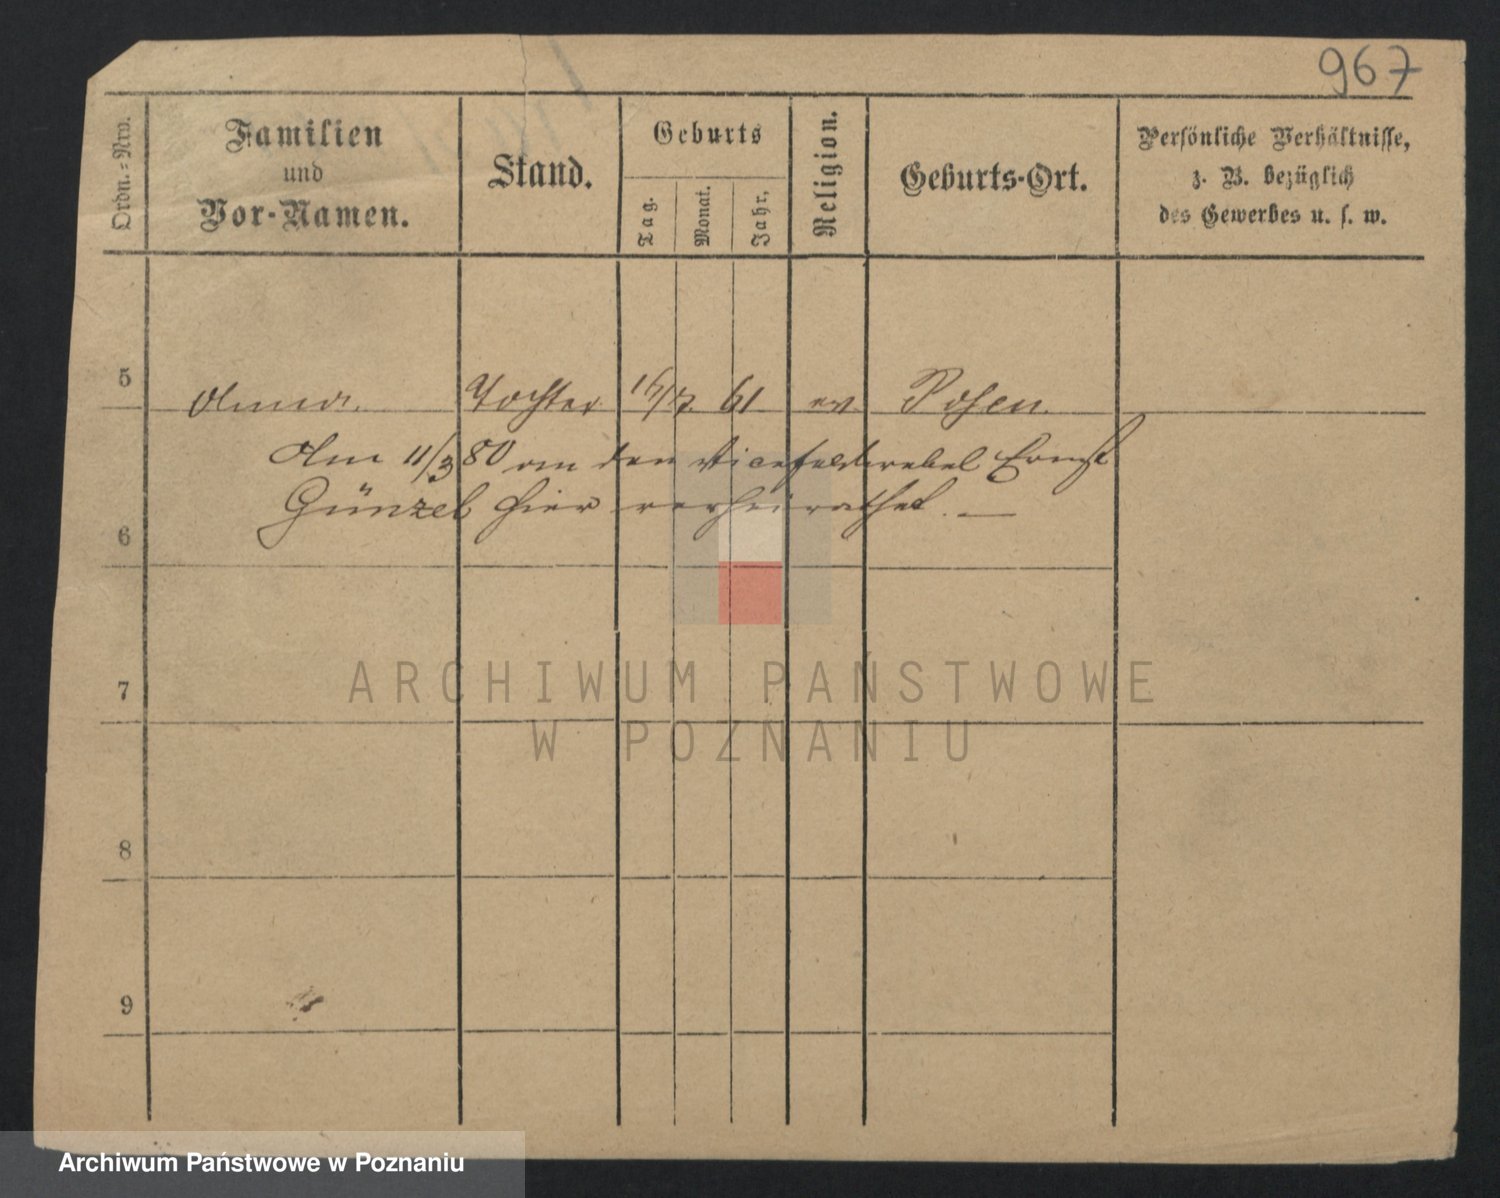 967
Ordn.-Nro.
Familien
und
Vor-Namen.
Stand.
Geburts
Tag.
Monat.
Jahr.
Religion.
Geburts-Ort.
Persönliche Verhältnisse,
z. B. bezüglich
des Gewerbes u. s. w.
5 Anna. Tochter 61 ev. Posen.
Am 11/3 80 an den Vicefeldwebel Ernst
Günzel hier verheirathet. —
6
7
8
9
ARCHIWUM PAŃSTWOWE
W POZNANIU
Archiwum Państwowe w Poznaniu